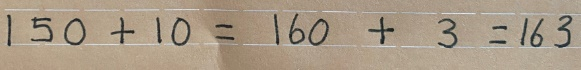 150 + 10 = 160 + 3 = 163